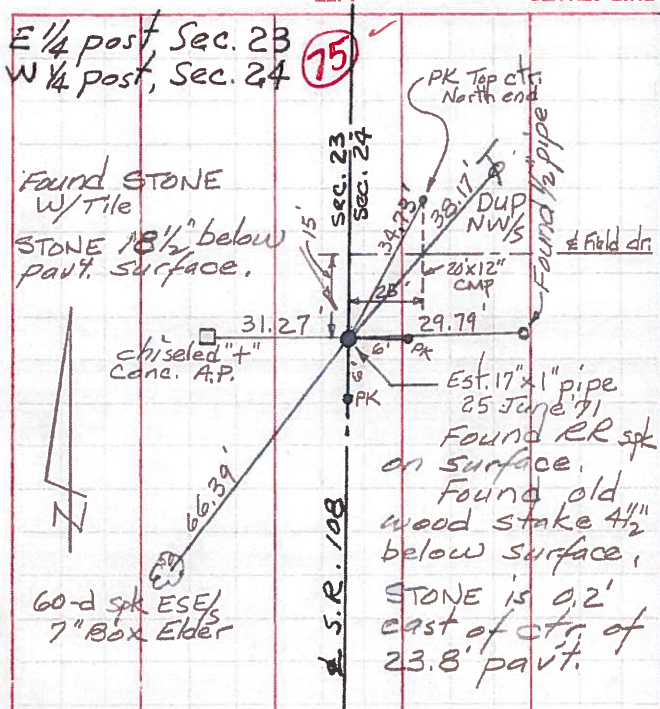 E 1/4 post, Sec. 23
W 1/4 post, Sec. 24
75
PK Top ctr.
North end
sec. 23
sec. 24
Found STONE
W/Tile
STONE 18 1/2" below
pav't. surface.
15'
34.73'
38.17'
DUP
NW/s
Found 1/2" pipe
℄ Field dr.
20'x12"
CMP
25'
31.27'
29.79'
chiseled "+"
Conc. A.P.
6'
PK
6'
PK
Est. 17"x1" pipe
25 June '71
Found RR spk
on surface.
Found old
wood stake 4 1/2"
below surface.
STONE is 0.2'
east of ctr. of
23.8' pav't.
66.39'
N
60-d spk ESE/s
7" Box Elder
℄ S.R. 108